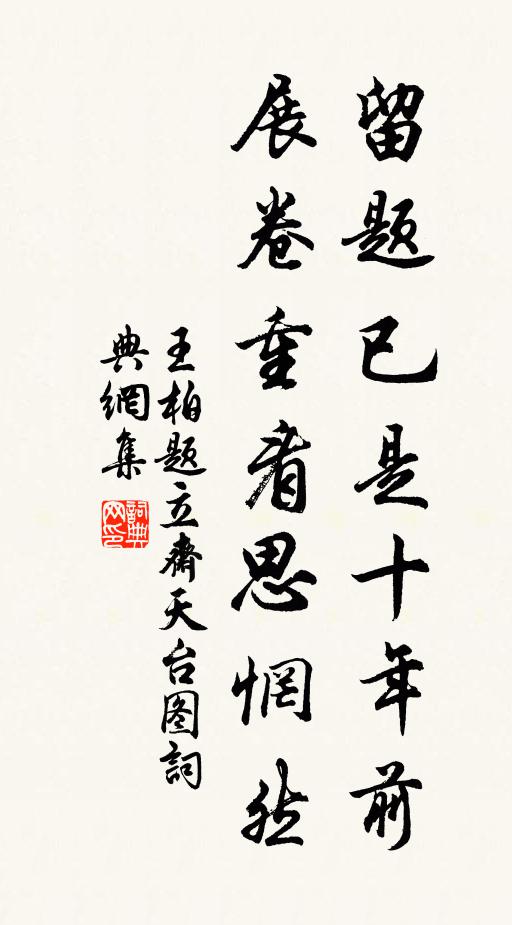 留题已是十年前
展卷重看思惘然
王柏题立齋天台图詞
典網集
詞典
网印